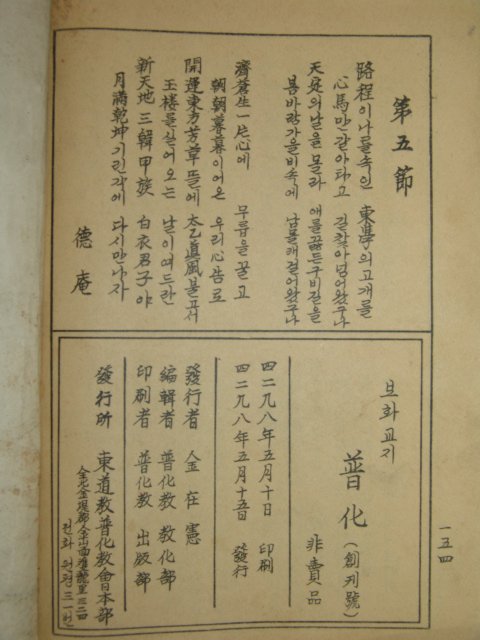 第五節
路程이나를속인 東學의고개를
心馬만갈아타고 길찾아넘어왔구나
天定의날을몰라 애를끓든구비길을
봄바람가을비속에 남몰래걸어왔구나
濟蒼生一片心에 무릎을꿀고
朝朝暮暮이어온 우리心告로
開運東方芳草뜰에 太乙道風불고서
玉樓를실어오는 날이여드란
新天地三韓甲族 白衣男子야
月滿乾坤기린각에 다시만나자
德庵
보화교지
普化(創刊號)
非賣品
四二九八年五月十日 印刷
四二九八年五月十五日 發行
發行者 金在憲
編輯者 普化教 教化部
印刷者 普化教 出版部
發行所 東道教普化教會本部
全北金堤郡金山面 龍里三二四
전화 원평 三一번
一五四